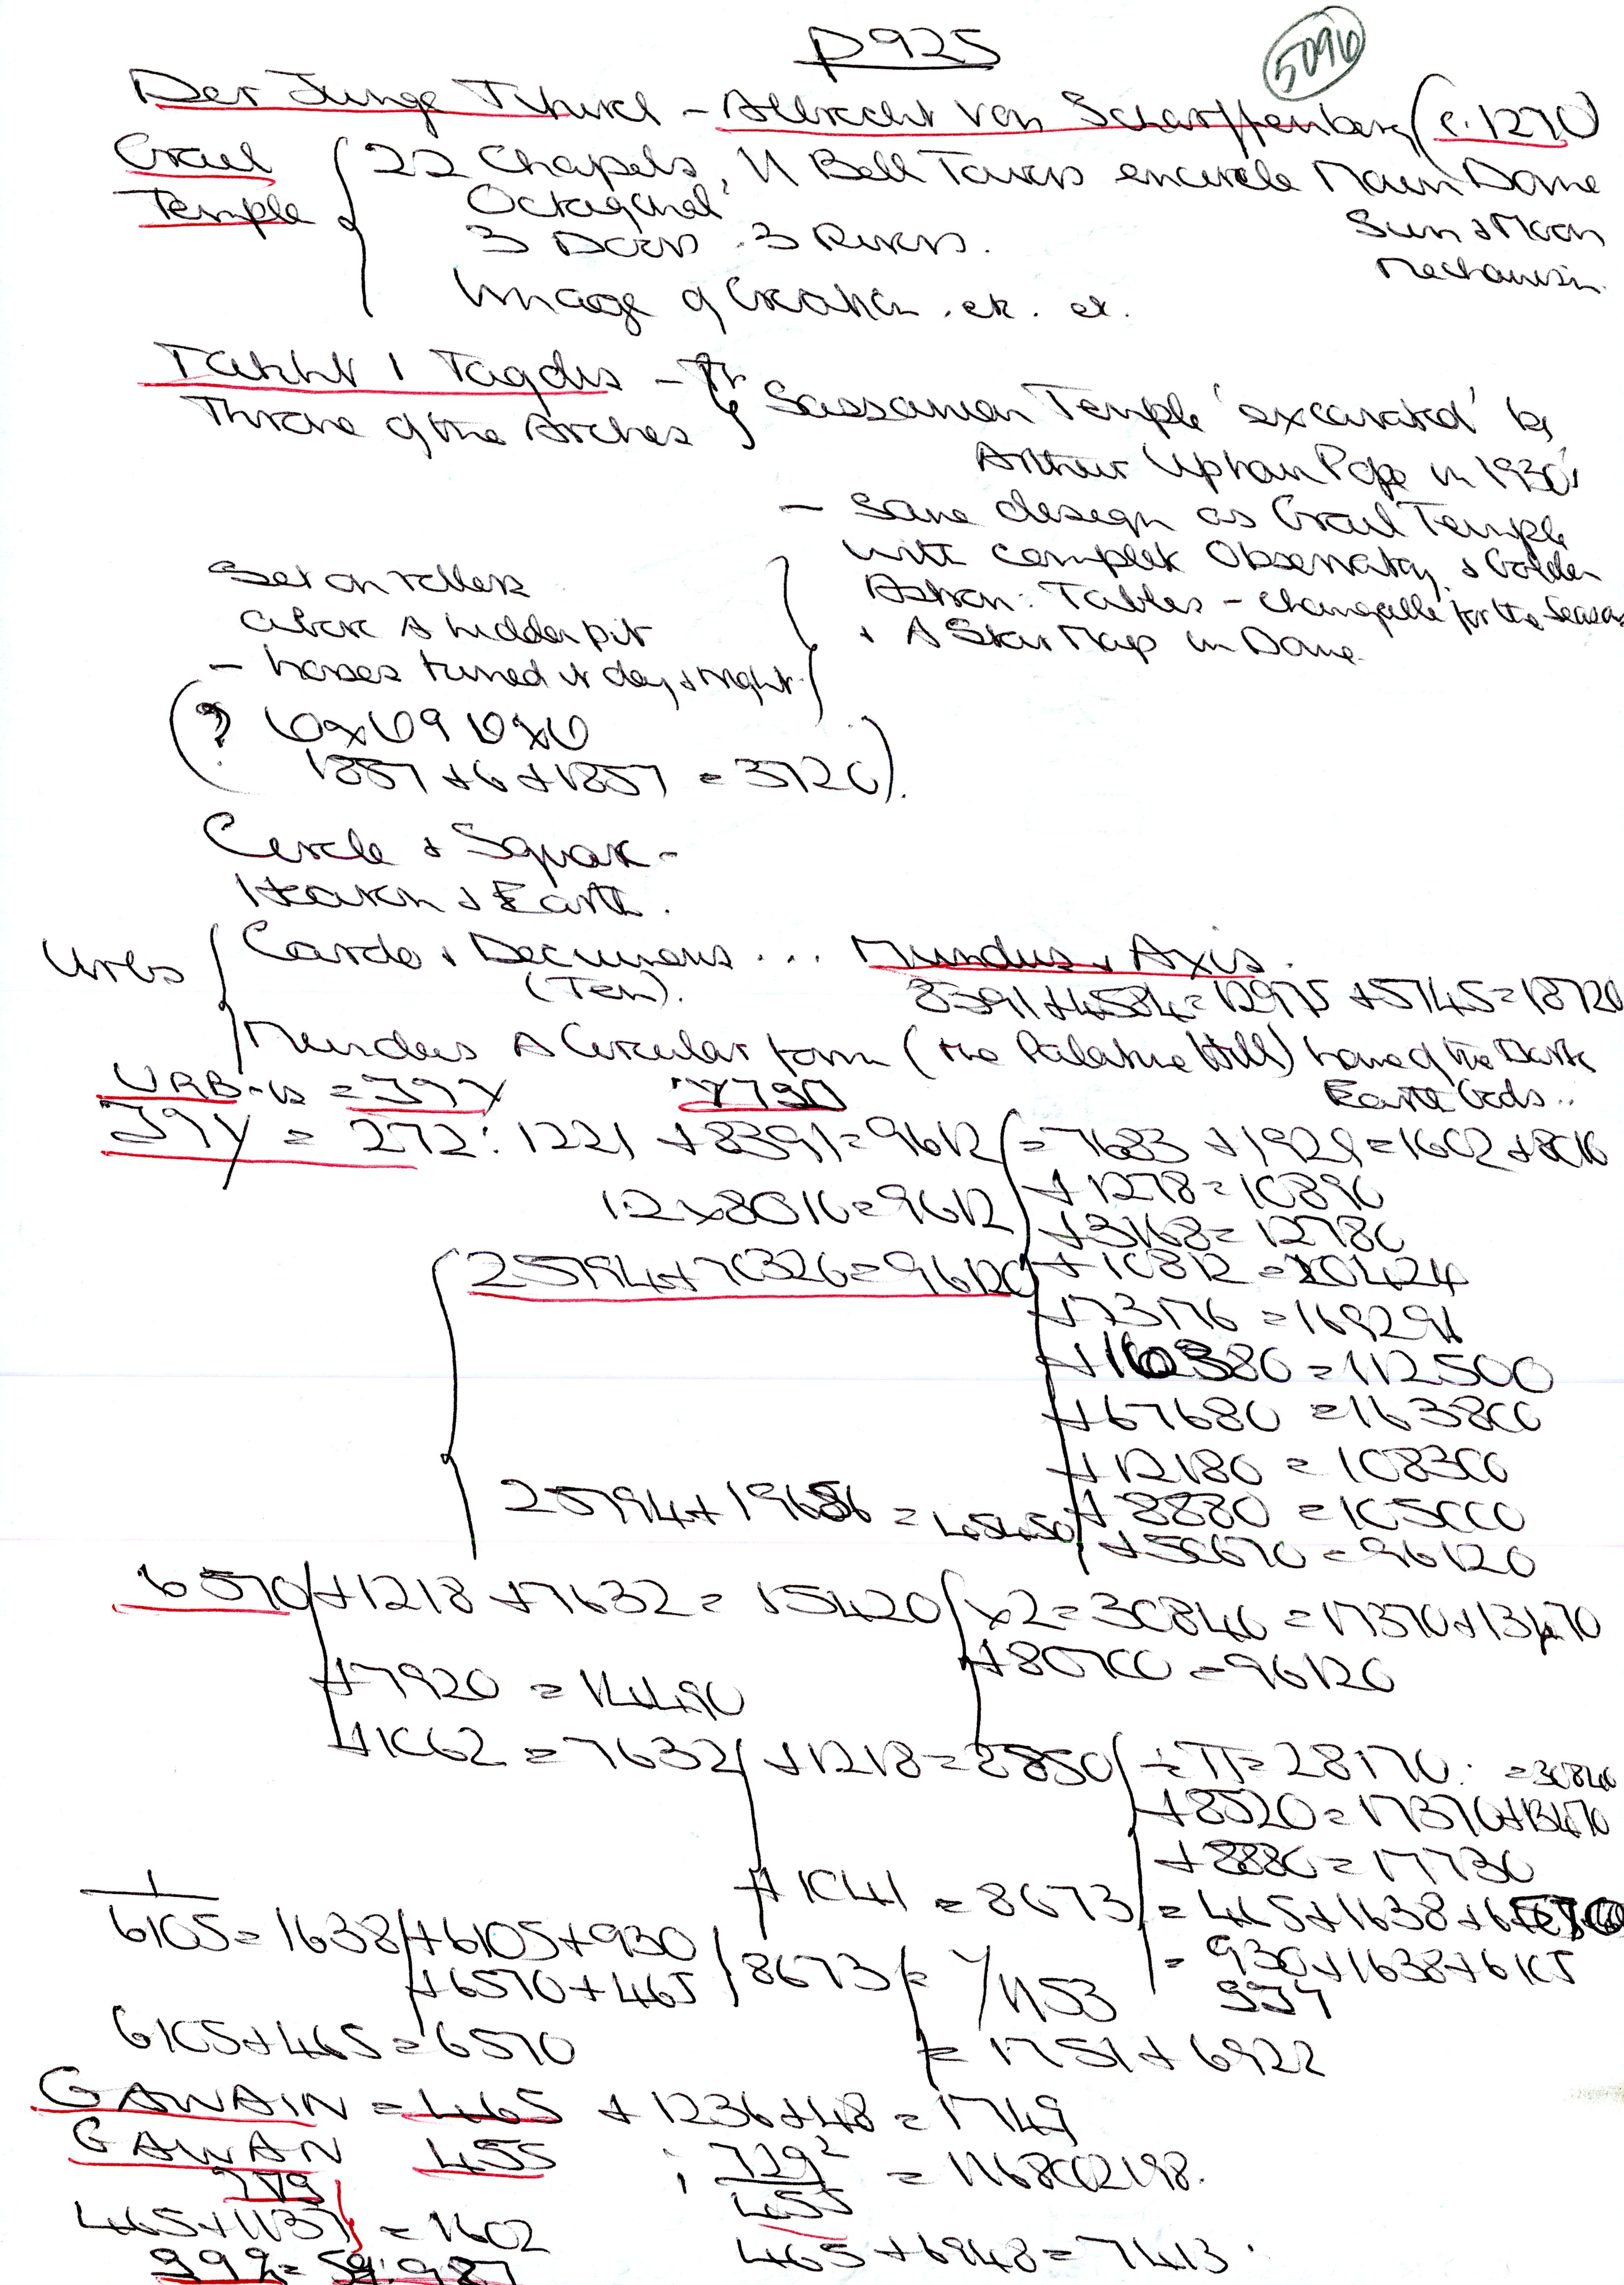 P925
5096
Der Junge Titurel - Albrecht von Scharffenberg (c.1270)
Grail Temple { 22 Chapels, 11 Bell Towers encircle Main Dome
Octagonal
Sun & Moon
3 Doors . 3 Rivers.
Mechanism.
Image of Creation . etc. etc.
Takht i Taqdis -
Throne of the Arches } Sassanian Temple 'excavated' by
Arthur Upham Pope in 1930's
- Same design as Grail Temple
with complete Observatory & Golden
Set on rollers
Astron: Tables - changeable for the Seasons
above A hidden pit
+ A Star Map in Dome.
- horses turned it day & night.
(?
1857 + 6 + 1857 = 3720).
Circle & Square -
Heaven & Earth.
Urbs { Cardo & Decumens ... Mundus & Axis.
(Ten).
8391 + 4584 = 12975 + 5745 = 18720
Mundus A Circular form (the Palatine Hill) home of the Dark
Earth Gods..
URB-is = 399
= 272 : 1221 + 8391 = 9612 = 7683 + 1929 = 1602 + 8010
12 x 8010 = 9612
+ 1278 = 10890
+ 3168 = 12780
25794 + 70326 = 96120
+ 10812 = 20424
+ 73176 = 169296
= 112500
+ 67680 = 163800
+ 12180 = 108300
25794 + 19656 = 45450
+ 8880 = 105000
+ 50670 = 96120
6570 + 1218 + 7632 = 15420 x 2 = 30840 = 17370 + 13470
+ 80700 = 96120
+ 7920 = 14490
+ 1062 = 7632 + 1218 = 8850 ÷ π = 28170. = 30840
+ 8520 = 17370 + 13470
+ 8880 = 17730
+ 1041 = 8673 = 465 + 1638 + 6570
1/6105 = 1638 + 6105 + 930
= 930 + 1638 + 6105
+ 6570 + 465 } 8673 = 1/1153
6105 + 465 = 6570
= 1751 + 6922
GAWAIN = 465 + 1236 + 48 = 1749
GAWAN 455 ; 729²/455 = 116802198.
465 + 1137 = 1602
465 + 6948 = 7413.